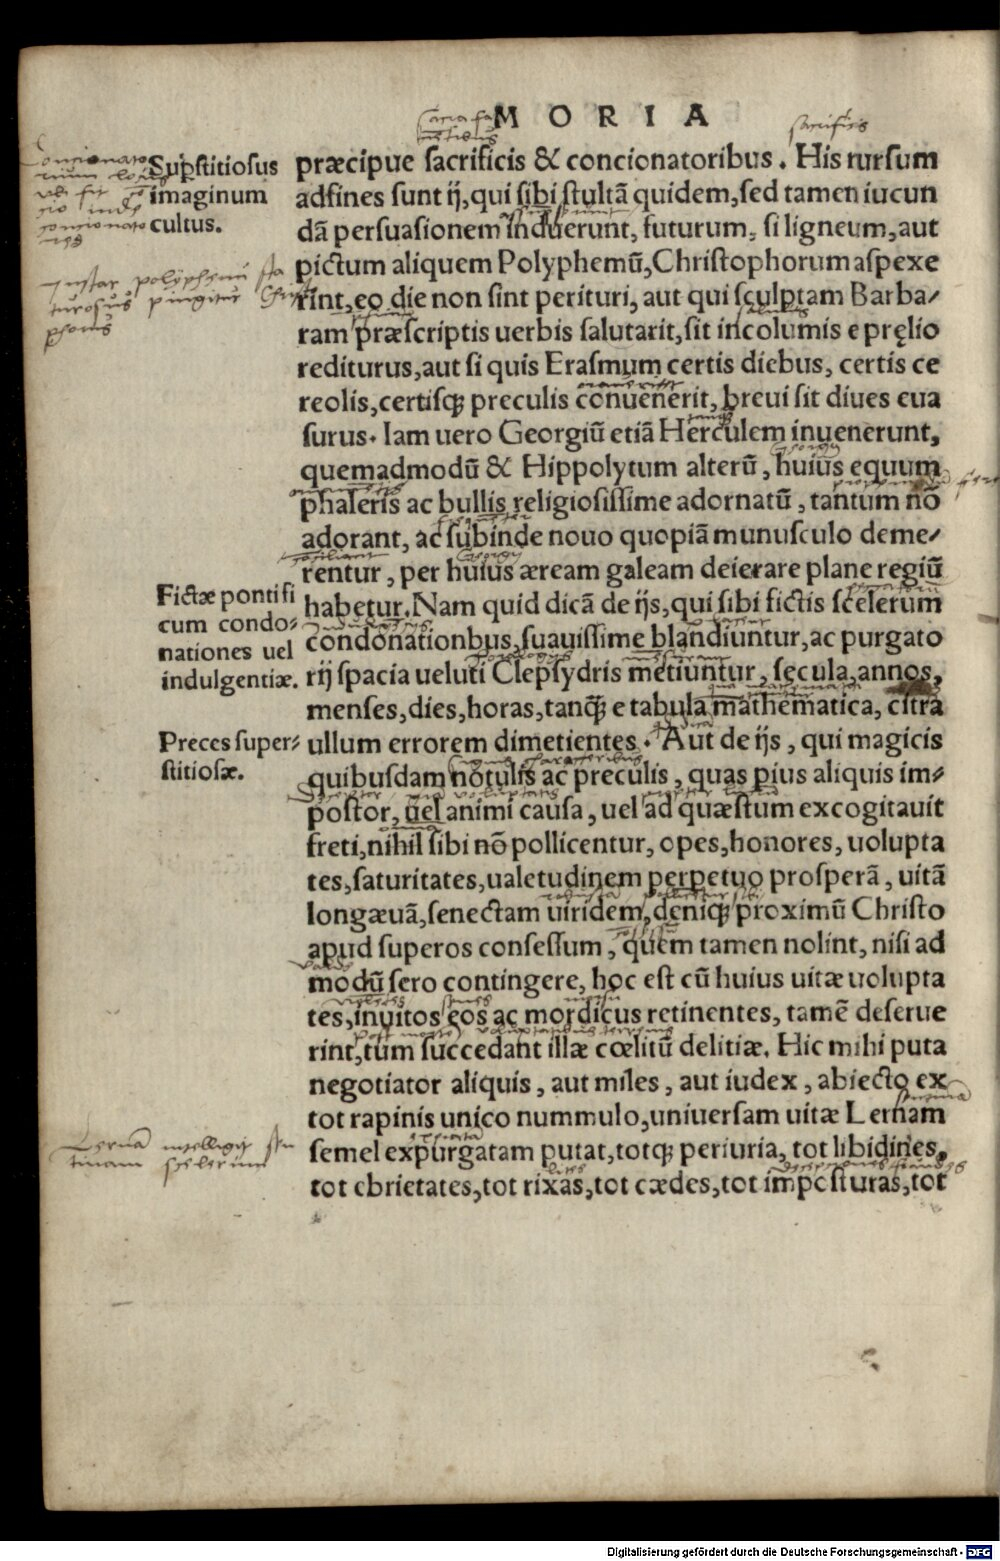 MORIA
Sup̱stitiosus
imaginum
cultus.
præcipue sacrificis & concionatoribus. His rursum
adfines sunt ij, qui sibi stultã quidem, sed tamen iucun
dã persuasionem induerunt, futurum, si ligneum, aut
pictum aliquem Polyphemũ, Christophorum aspexe
rint, eo die non sint perituri, aut qui sculptam Barba/
ram præscriptis uerbis salutarit, sit incolumis e pręlio
rediturus, aut si quis Erasmum certis diebus, certis ce
reolis, certisq; preculis conuenerit, breui sit diues eua
surus. Iam uero Georgiũ etiã Herculem inuenerunt,
quemadmodũ & Hippolytum alterũ, huius equum
phaleris ac bullis religiosissime adornatũ, tantum nõ
adorant, ac subinde nouo quopiã munusculo deme/
rentur, per huius æream galeam deierare plane regiũ
Fictæ pontifi
cum condo-
nationes uel
indulgentiæ.
habetur. Nam quid dicã de ijs, qui sibi fictis scelerum
condonationbus, suauissime blandiuntur, ac purgato
rij spacia ueluti Clepsydris metiuntur, sęcula, annos,
menses, dies, horas, tanq̃ e tabula mathematica, citra
Preces super-
stitiosæ.
ullum errorem dimetientes. Aut de ijs, qui magicis
quibusdam notulis ac preculis, quas pius aliquis im-
postor, uel animi causa, uel ad quæstum excogitauit
freti, nihil sibi nõ pollicentur, opes, honores, uolupta
tes, saturitates, ualetudinem perpetuo prosperã, uitã
longæuã, senectam uiridem, deniq; proximũ Christo
apud superos consessum, quem tamen nolint, nisi ad
modũ sero contingere, hoc est cũ huius uitæ uolupta
tes, inuitos eos ac mordicus retinentes, tamẽ deserue
rint, tum succedant illæ cœlitũ delitiæ. Hic mihi puta
negotiator aliquis, aut miles, aut iudex, abiecto ex
tot rapinis unico nummulo, uniuersam uitæ Lernam
Lernã intelligit sen
tinam scelerum
semel expurgatam putat, totq; periuria, tot libidines,
tot ebrietates, tot rixas, tot cædes, tot imposturas, tot
Digitalisierung gefördert durch die Deutsche Forschungsgemeinschaft - DFG